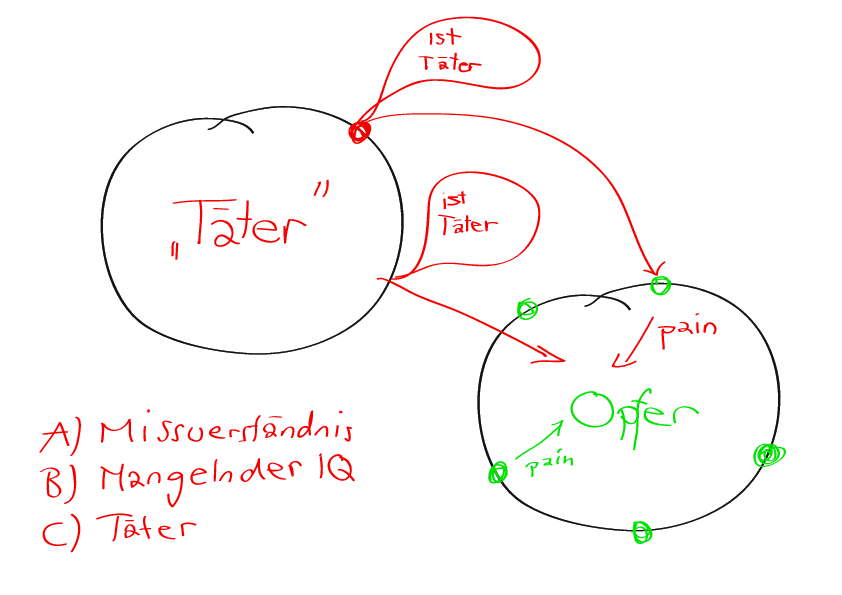 ist
Täter
„Täter”
ist
Täter
pain
Opfer
pain
A) Missverständnis
B) Mangelnder IQ
C) Täter